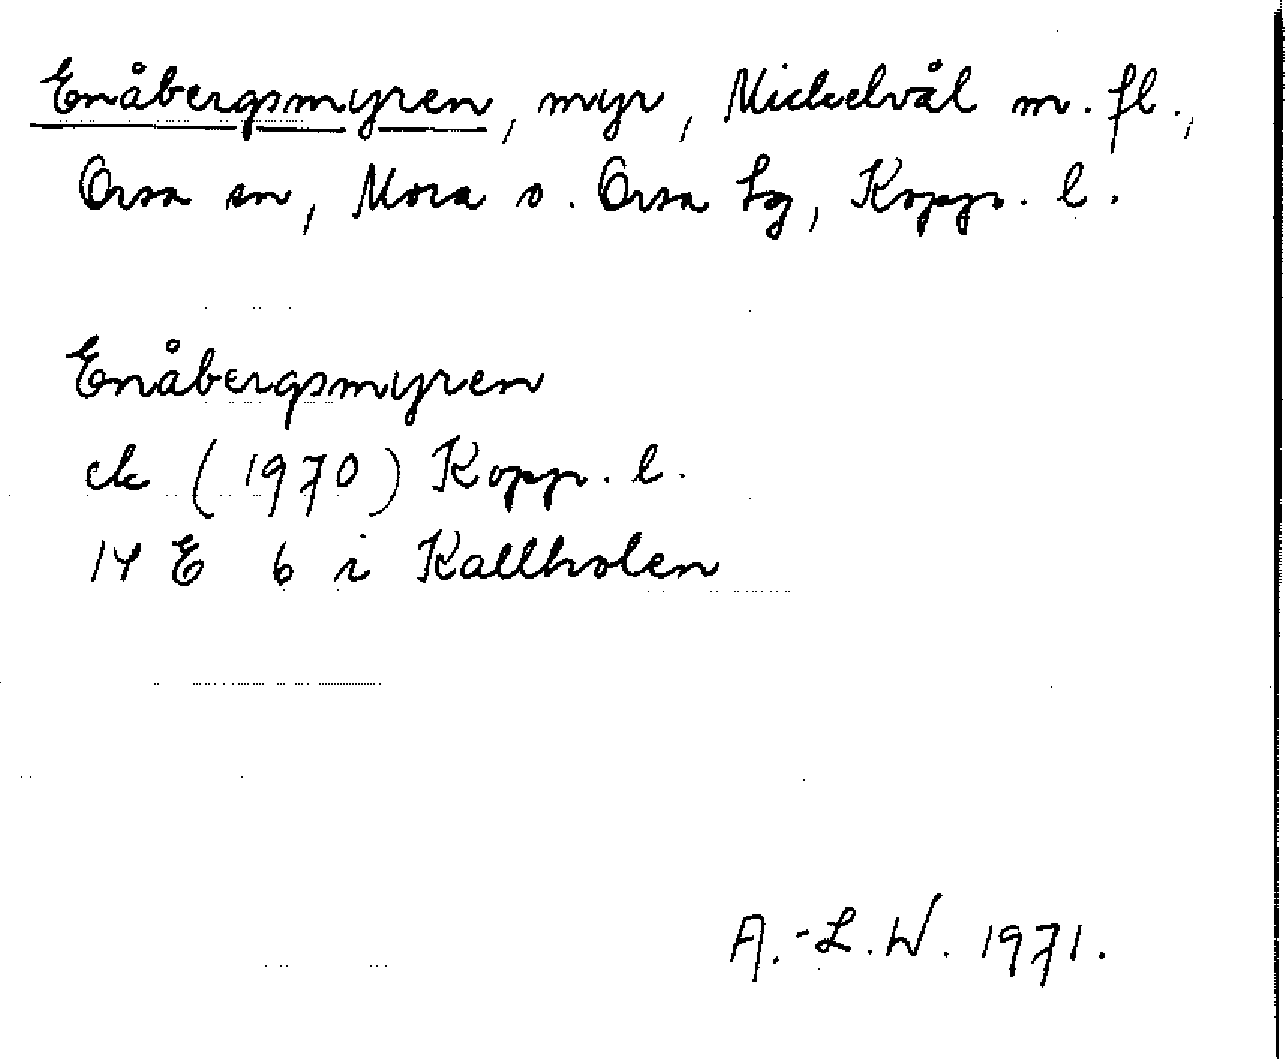 Enåbergsmyren, myr, Mickelvål m. fl.,
Orsa sn, Mora o. Orsa tg, Kopp. l.
Enåbergsmyren
ek (1970) Kopp. l.
14 E 6 i Kallholen
A.-L.W. 1971.